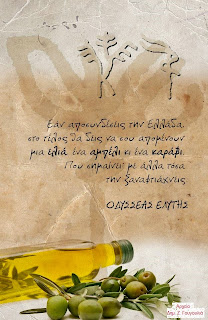 Εάν αποσυνδέσεις την Ελλάδα,
στο τέλος θα δεις να σου απομένουν
μια ελιά, ένα αμπέλι κι ένα καράβι.
Που σημαίνει: με άλλα τόσα
την ξαναφτιάχνεις
ΟΔΥΣΣΕΑΣ ΕΛΥΤΗΣ
Αρχείο